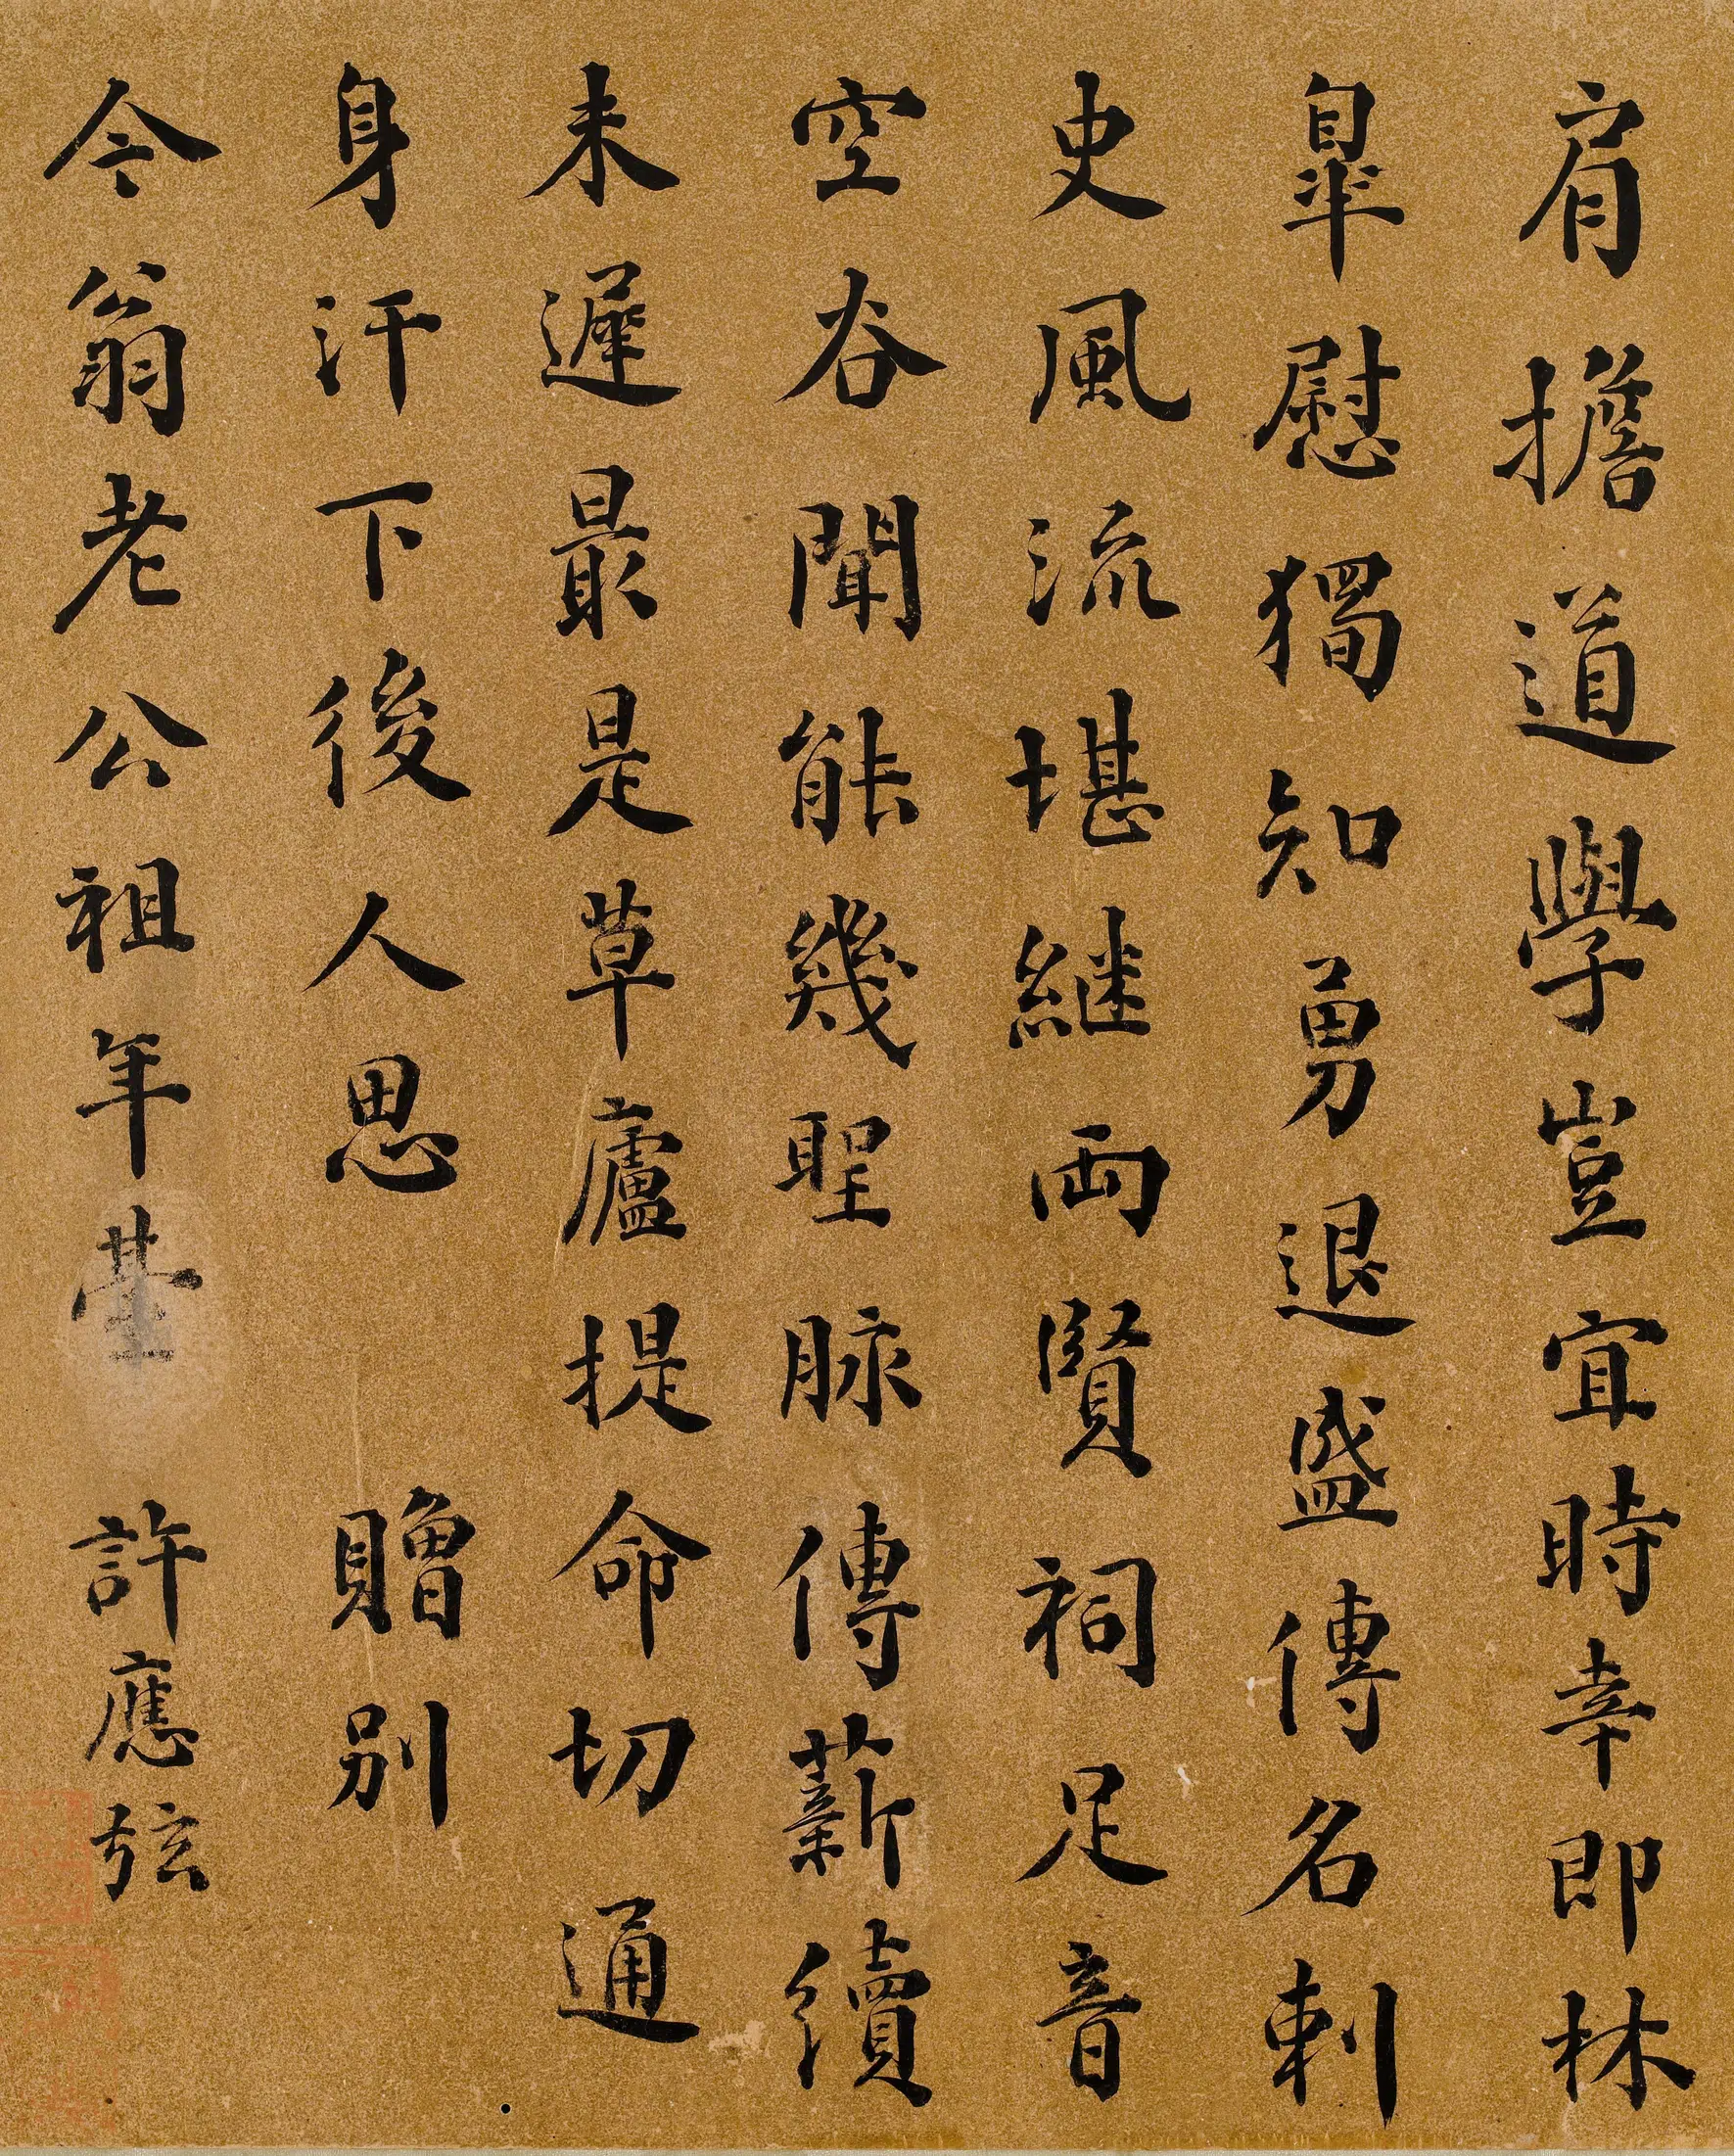 肩擔道學豈宜時幸即林
皐慰獨知勇退盛傳名刺
史風流堪継両賢祠足音
空谷聞能幾聖脉傳薪續
未遲最是草廬提命切通
身汗下後人思　贈別
今翁老公祖年臺　許應弦